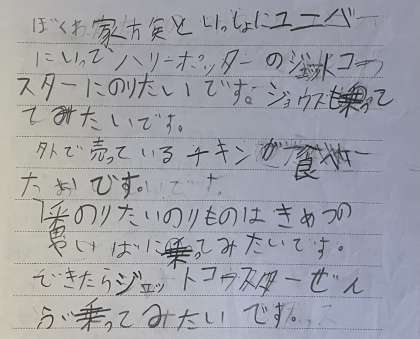 ぼくわ家方矢といっしょにユニバー
にいってハリーポッターのジェットコー
スターにのりたいです。ジョウズも乗って
てみたいです。
外で売っているチキンが食
たいです。
乗のりたいのりものはきめつの
やいばに乗ってみたいです。
できたらジェットコウスターぜん
らが乗ってみたいです。